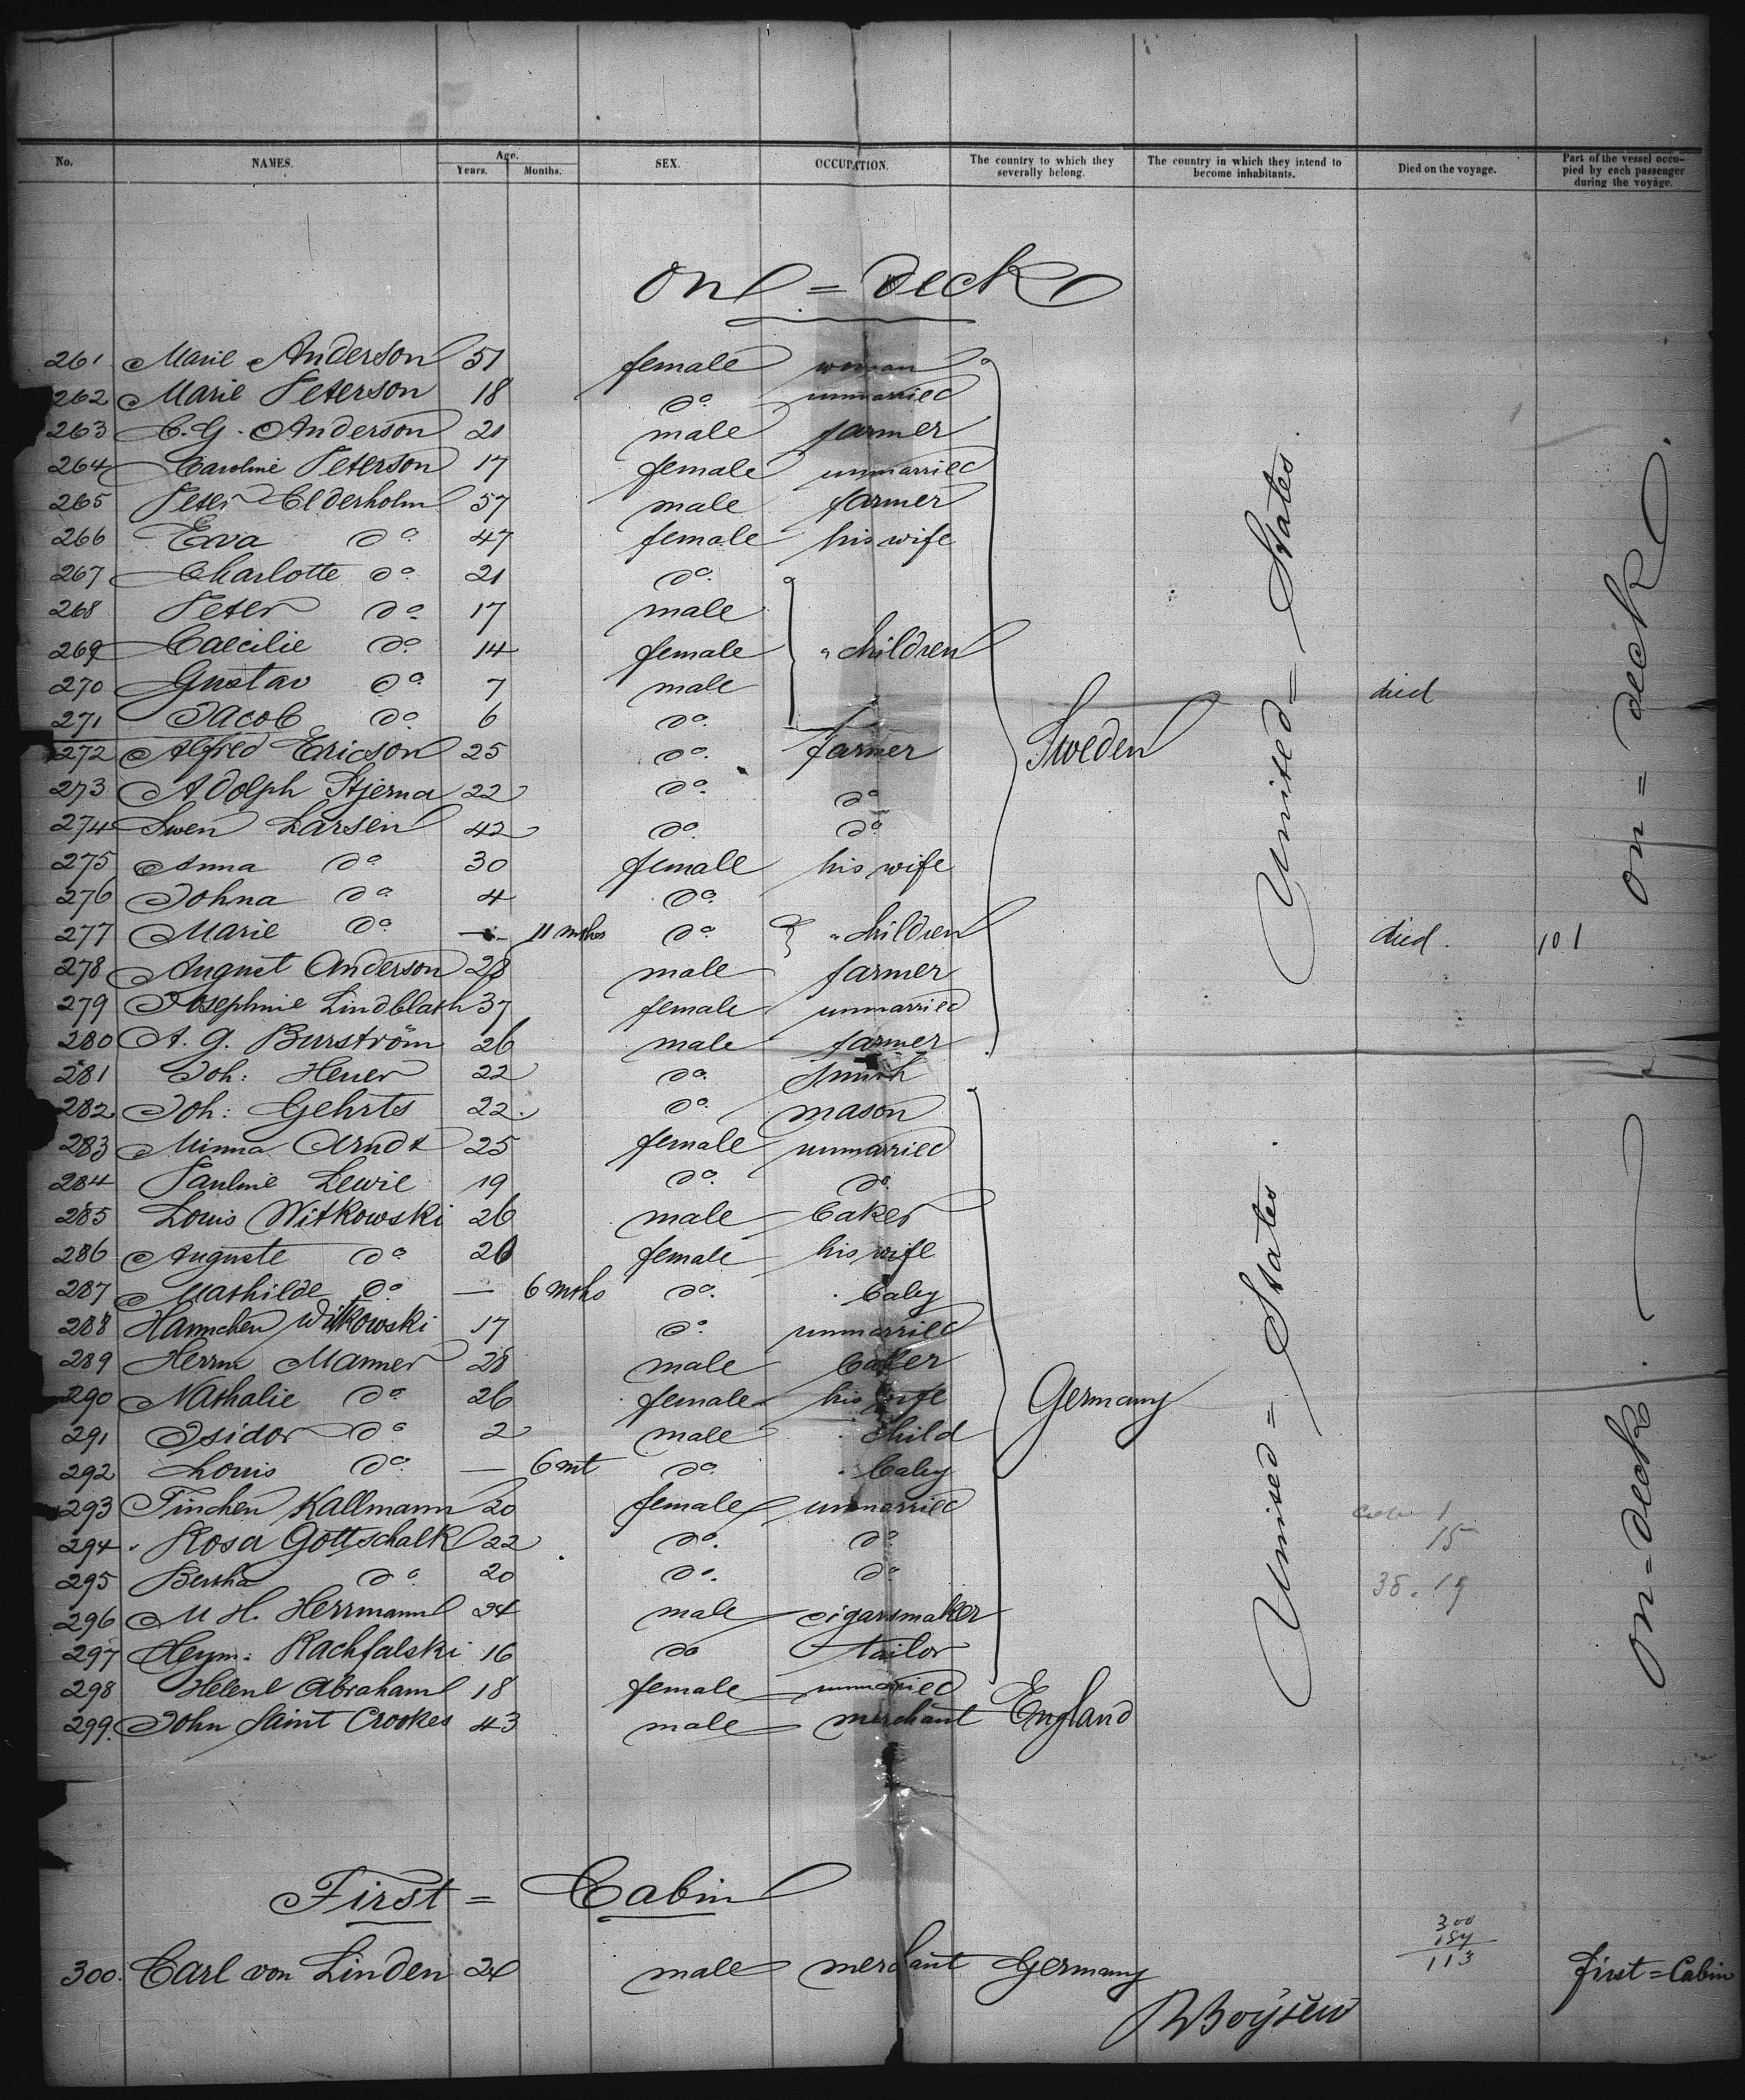 No. NAMES. Age. Years. Months. SEX. OCCUPATION. The country to which they severally belong. The country in which they intend to become inhabitants. Died on the voyage. Part of the vessel occupied by each passenger during the voyage.
on = deck
261 Marie Anderson 51 female woman
262 Marie Peterson 18 do. unmarried
263 C. G. Anderson 21 male farmer
264 Caroline Peterson 17 female unmarried
265 Peter Elderholm 57 male farmer
266 Eva do 47 female his wife
267 Charlotte do. 21 do.
268 Peter do 17 male
269 Caecilie do 14 female " children
270 Gustav do 7 male died
271 Jacob do. 6 do.
272 Alfred Ericson 25 do. farmer Sweden United = States on = deck
273 Adolph Stjerna 22 do. do
274 Swen Larsen 42 do. do
275 Anna do 30 female his wife
276 Johna do 4 do.
277 Marie do — 11 mths do. " children died. 101
278 August Anderson 28 male farmer
279 Josephine Lindblath 37 female unmarried
280 A. G. Burström 26 male farmer
281 Joh: Heuer 22 do. smith
282 Joh: Gehrts 22. do. mason
283 Minna Arndt 25 female unmarried
284 Pauline Lewie 19 do. do.
285 Louis Witkowski 26 male baker
286 Auguste do 26 female his wife
287 Mathilde do — 6 mths do. baby
288 Hannchen Witkowski 17 do. unmarried
289 Herrm Manner 28 male baker
290 Nathalie do 26 female his wife Germany United = States on = deck
291 Isidor do 2 male child
292 Louis do — 6 mt do. baby
293 Tinchen Kallmann 20 female unmarried
294 Rosa Gottschalk 22 do. do 15
295 Bertha do 20 do. do
296 M H. Herrmann 24 male cigarsmaker
297 Heym: Rachfalski 16 do tailor
298 Helene Abraham 18 female unmarried
299. John Saint Crookes 43 male merchant England
First = Cabin
300
113
300. Carl von Linden 24 male merchant Germany first = Cabin
Boysen